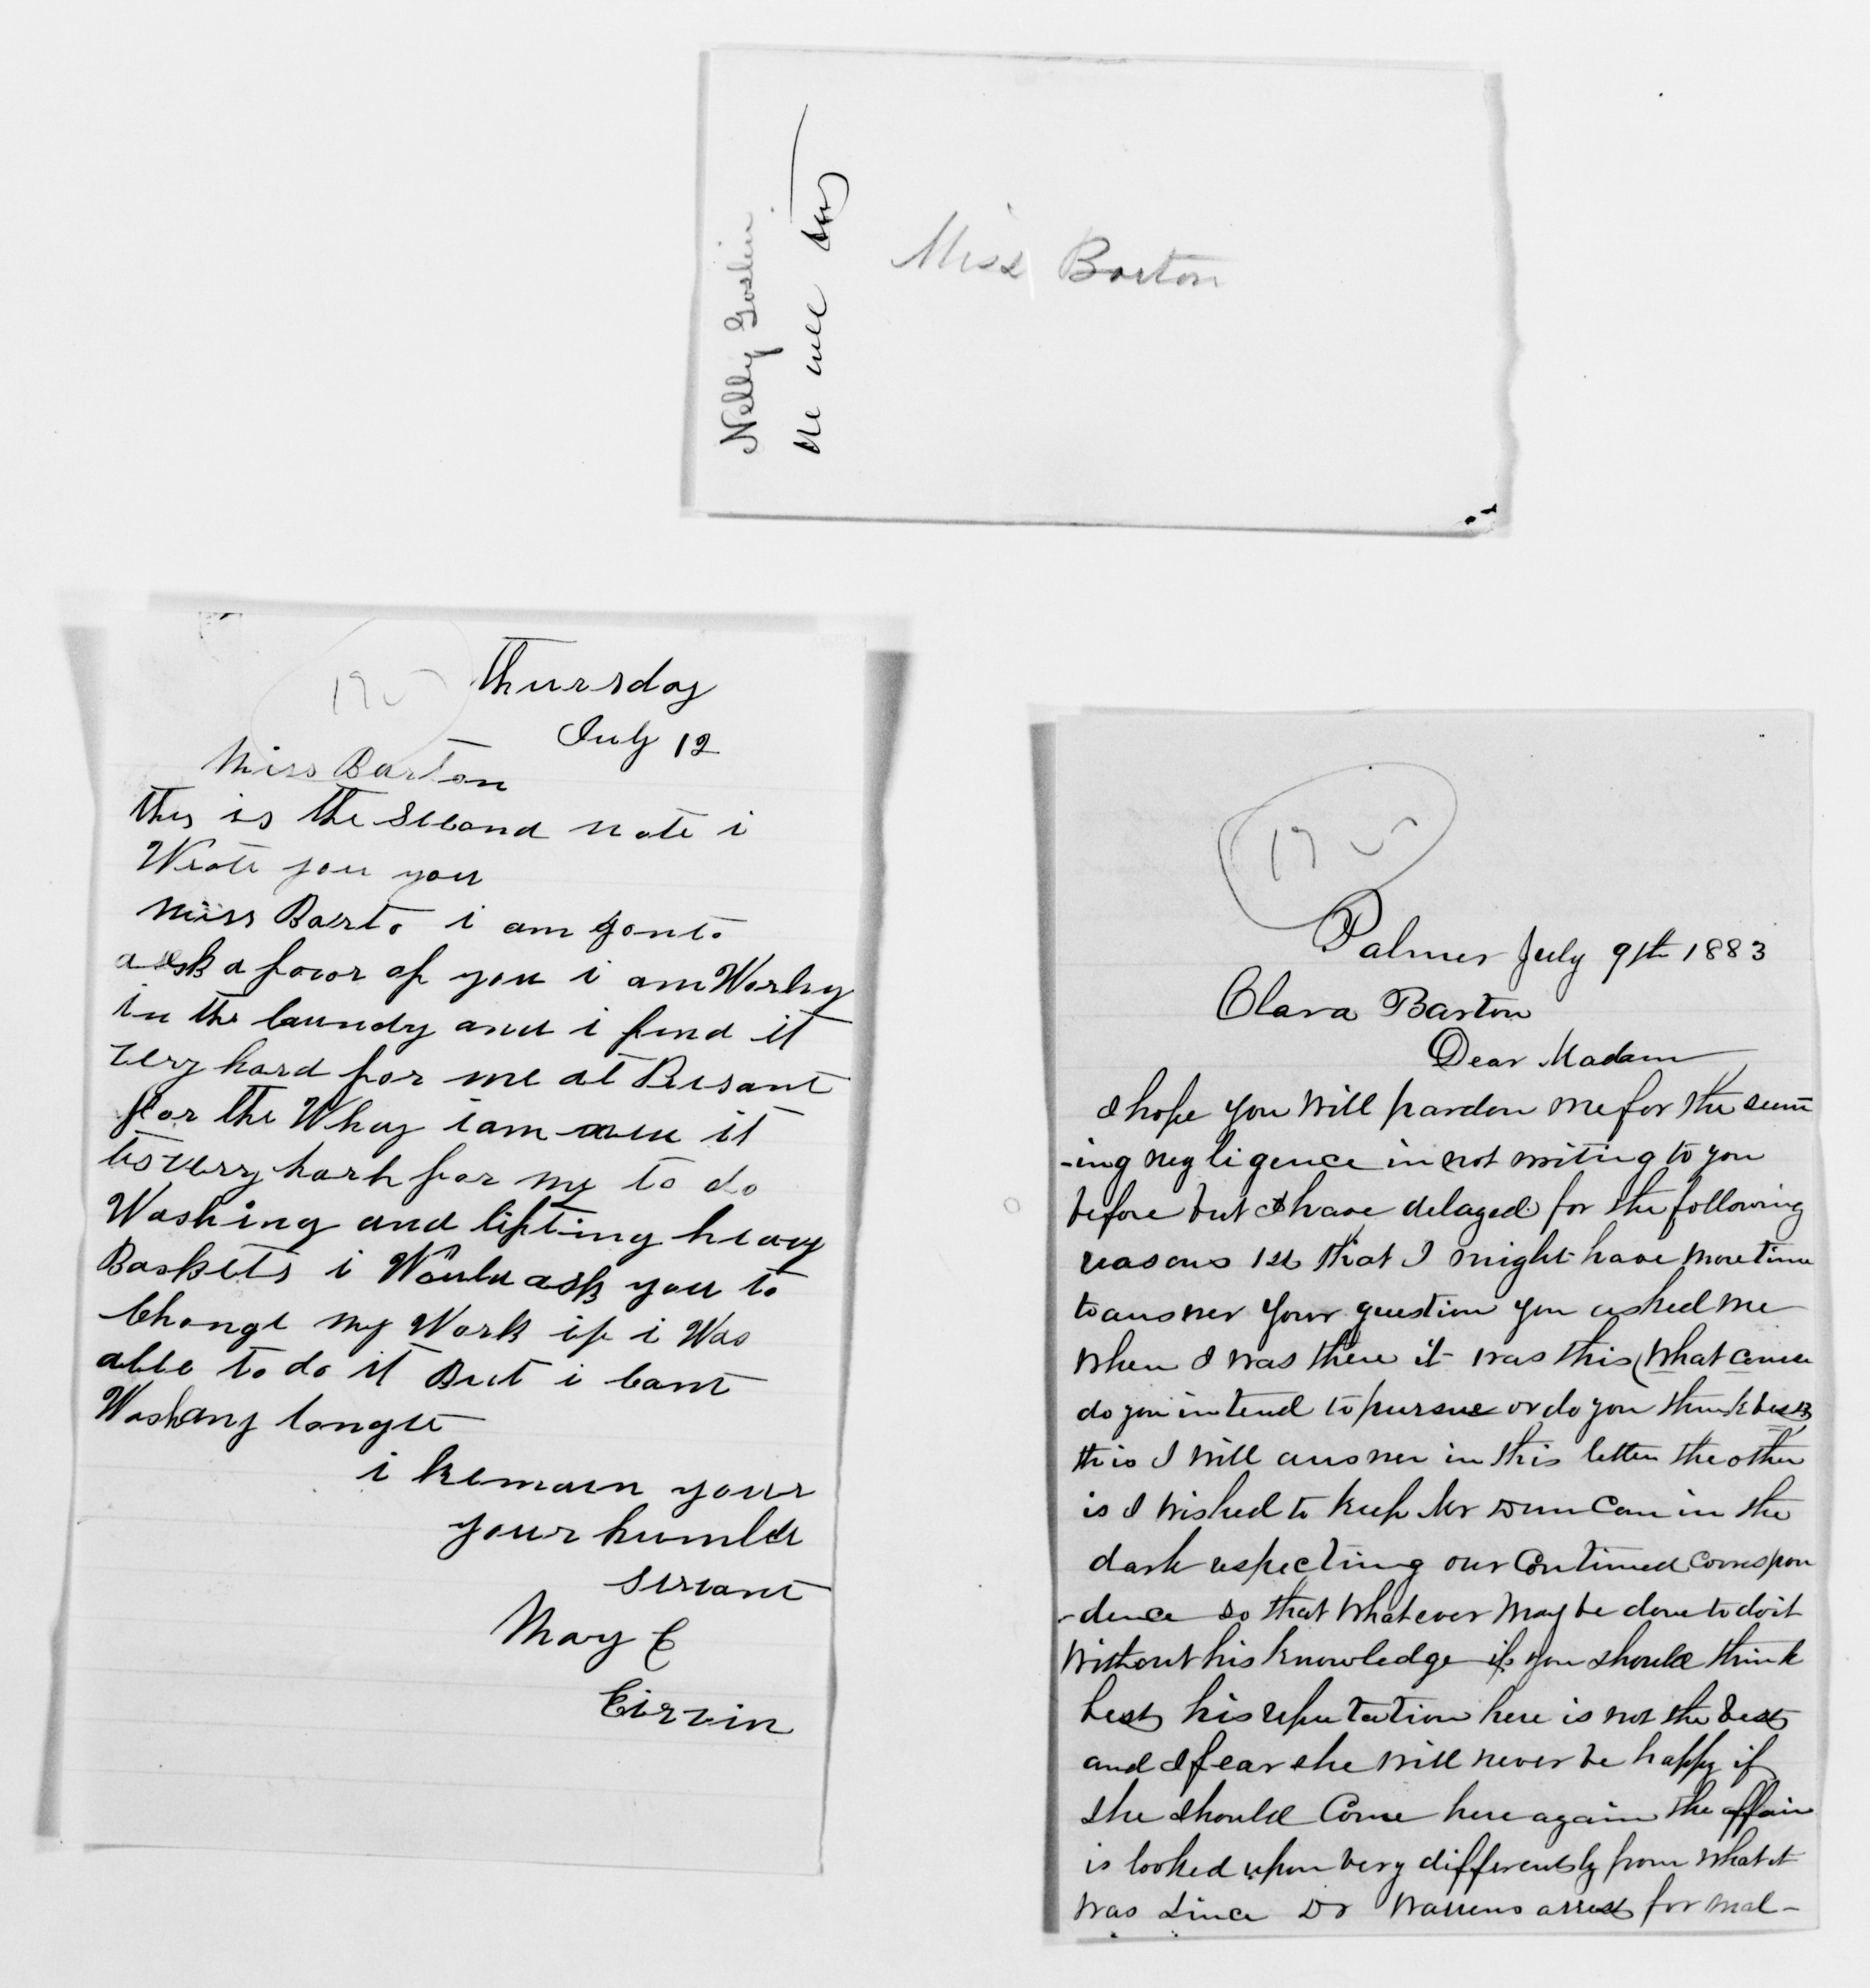 Miss Barton
Nelly Goslin
Thursday
July 12
Miss Barton
this is the second note i
Wrote you you
Miss Barto i am gonto
a ask a favor of you i am Worky
in the laundy and i find it
very hard for me at Presant
for the Whay i am it
tis very harh for my to do
Washing and lifting heavy
Baskets i Would ask you to
Change my Work if i Was
able to do it But i Cant
Washang longer
i Remain your
your humble
servant
Mary C
Cirvin
170
Palmer July 9th 1883
Clara Barton
Dear Madam
I hope you will pardon me for the seem
-ing negligence in not writing to you
before but I have delayed for the following
reasons 1st that I might have more time
to answer your question you asked me
when I was there it was this (What course
do you intend to pursue or do you think best)
this I will answer in this letter the other
is I wished to keep Mr Duncan in the
dark respecting our Continued correspon
-dence so that whatever may be done to do it
without his knowledge if you should think
best his reputation here is not the best
and I fear she will never be happy if
she should Come here again the affair
is looked upon very differently from what it
was since Dr Warrens arrest for mal-